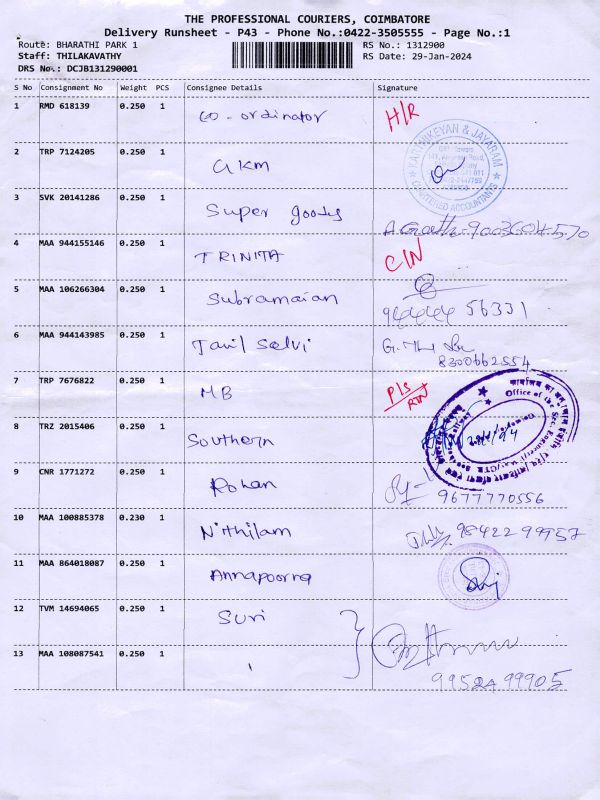 THE PROFESSIONAL COURIERS, COIMBATORE
Delivery Runsheet - P43 - Phone No.:0422-3505555 - Page No.:1
Route: BHARATHI PARK 1 RS No.: 1312900
Staff: THILAKAVATHY RS Date: 29-Jan-2024
DRS No.: DCJB131290001
S No Consignment No Weight PCS Consignee Details Signature
1 RMD 618139 0.250 1 Co-ordinator H/R
KARTHIKEYAN & JAYARAM
CHARTERED ACCOUNTANTS
2 TRP 7124205 0.250 1 GKM
3 SVK 20141286 0.250 1 Super goods
4 MAA 944155146 0.250 1 TRINITA C/N
5 MAA 106266304 0.250 1 Subramaian
94444 56331
6 MAA 944143985 0.250 1 Tamil Selvi
8300662554
7 TRP 7676822 0.250 1 MB P/S
Office of the
8 TRZ 2015406 0.250 1 Southern
9 CNR 1771272 0.250 1 Rohan
9677770556
10 MAA 100885378 0.230 1 Nithilam 98422 99957
11 MAA 864018087 0.250 1 Annapoorna
12 TVM 14694065 0.250 1 Suri
13 MAA 108087541 0.250 1
99524 99905